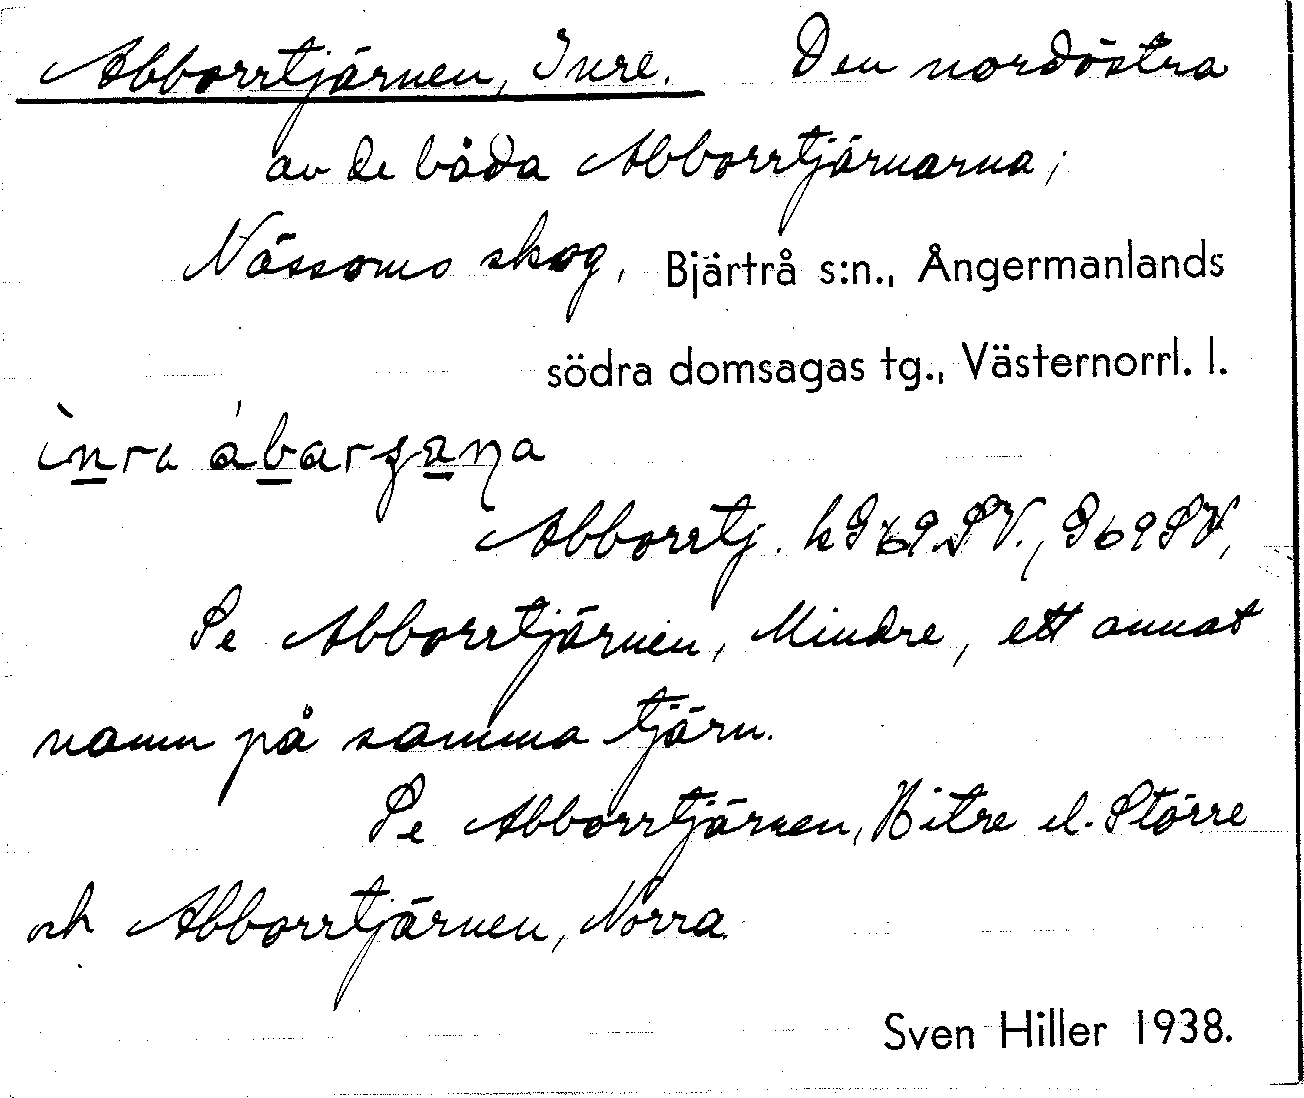 Abborrtjärnen, Inre. Den nordöstra
av de båda Abborrtjärnarna;
Nässoms skog, Bjärtrå s:n., Ångermanlands
södra domsagas tg., Västernorrl. l.
ìnra
Abborrtj. k 969 SV., 969 SV,
Se Abborrtjärnen, Mindre, ett annat
namn på samma tjärn.
Se Abborrtjärnen, Bitre el. Större
och Abborrtjärnen, Norra.
Sven Hiller 1938.